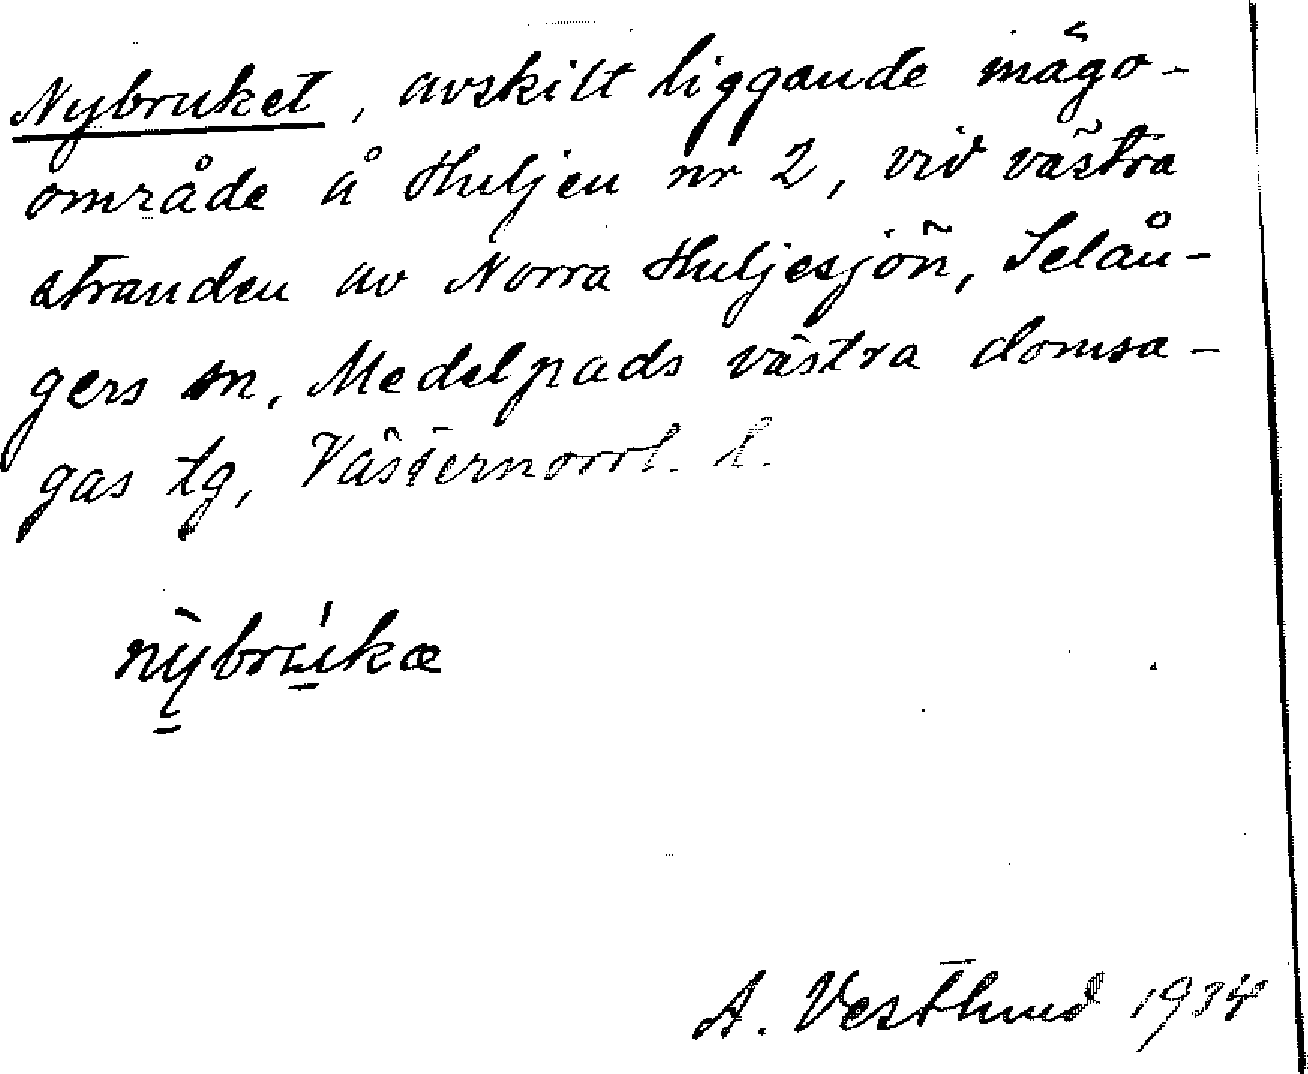 Nybruket, avskilt liggande inägo-
område å Huljen nr 2, vid västra
stranden av Norra Huljesjön, Selån-
gers sn, Medelpads västra domsa-
gas tg, Västernorrl. l.
nỳbrúkæ
A. Vestlund 1934